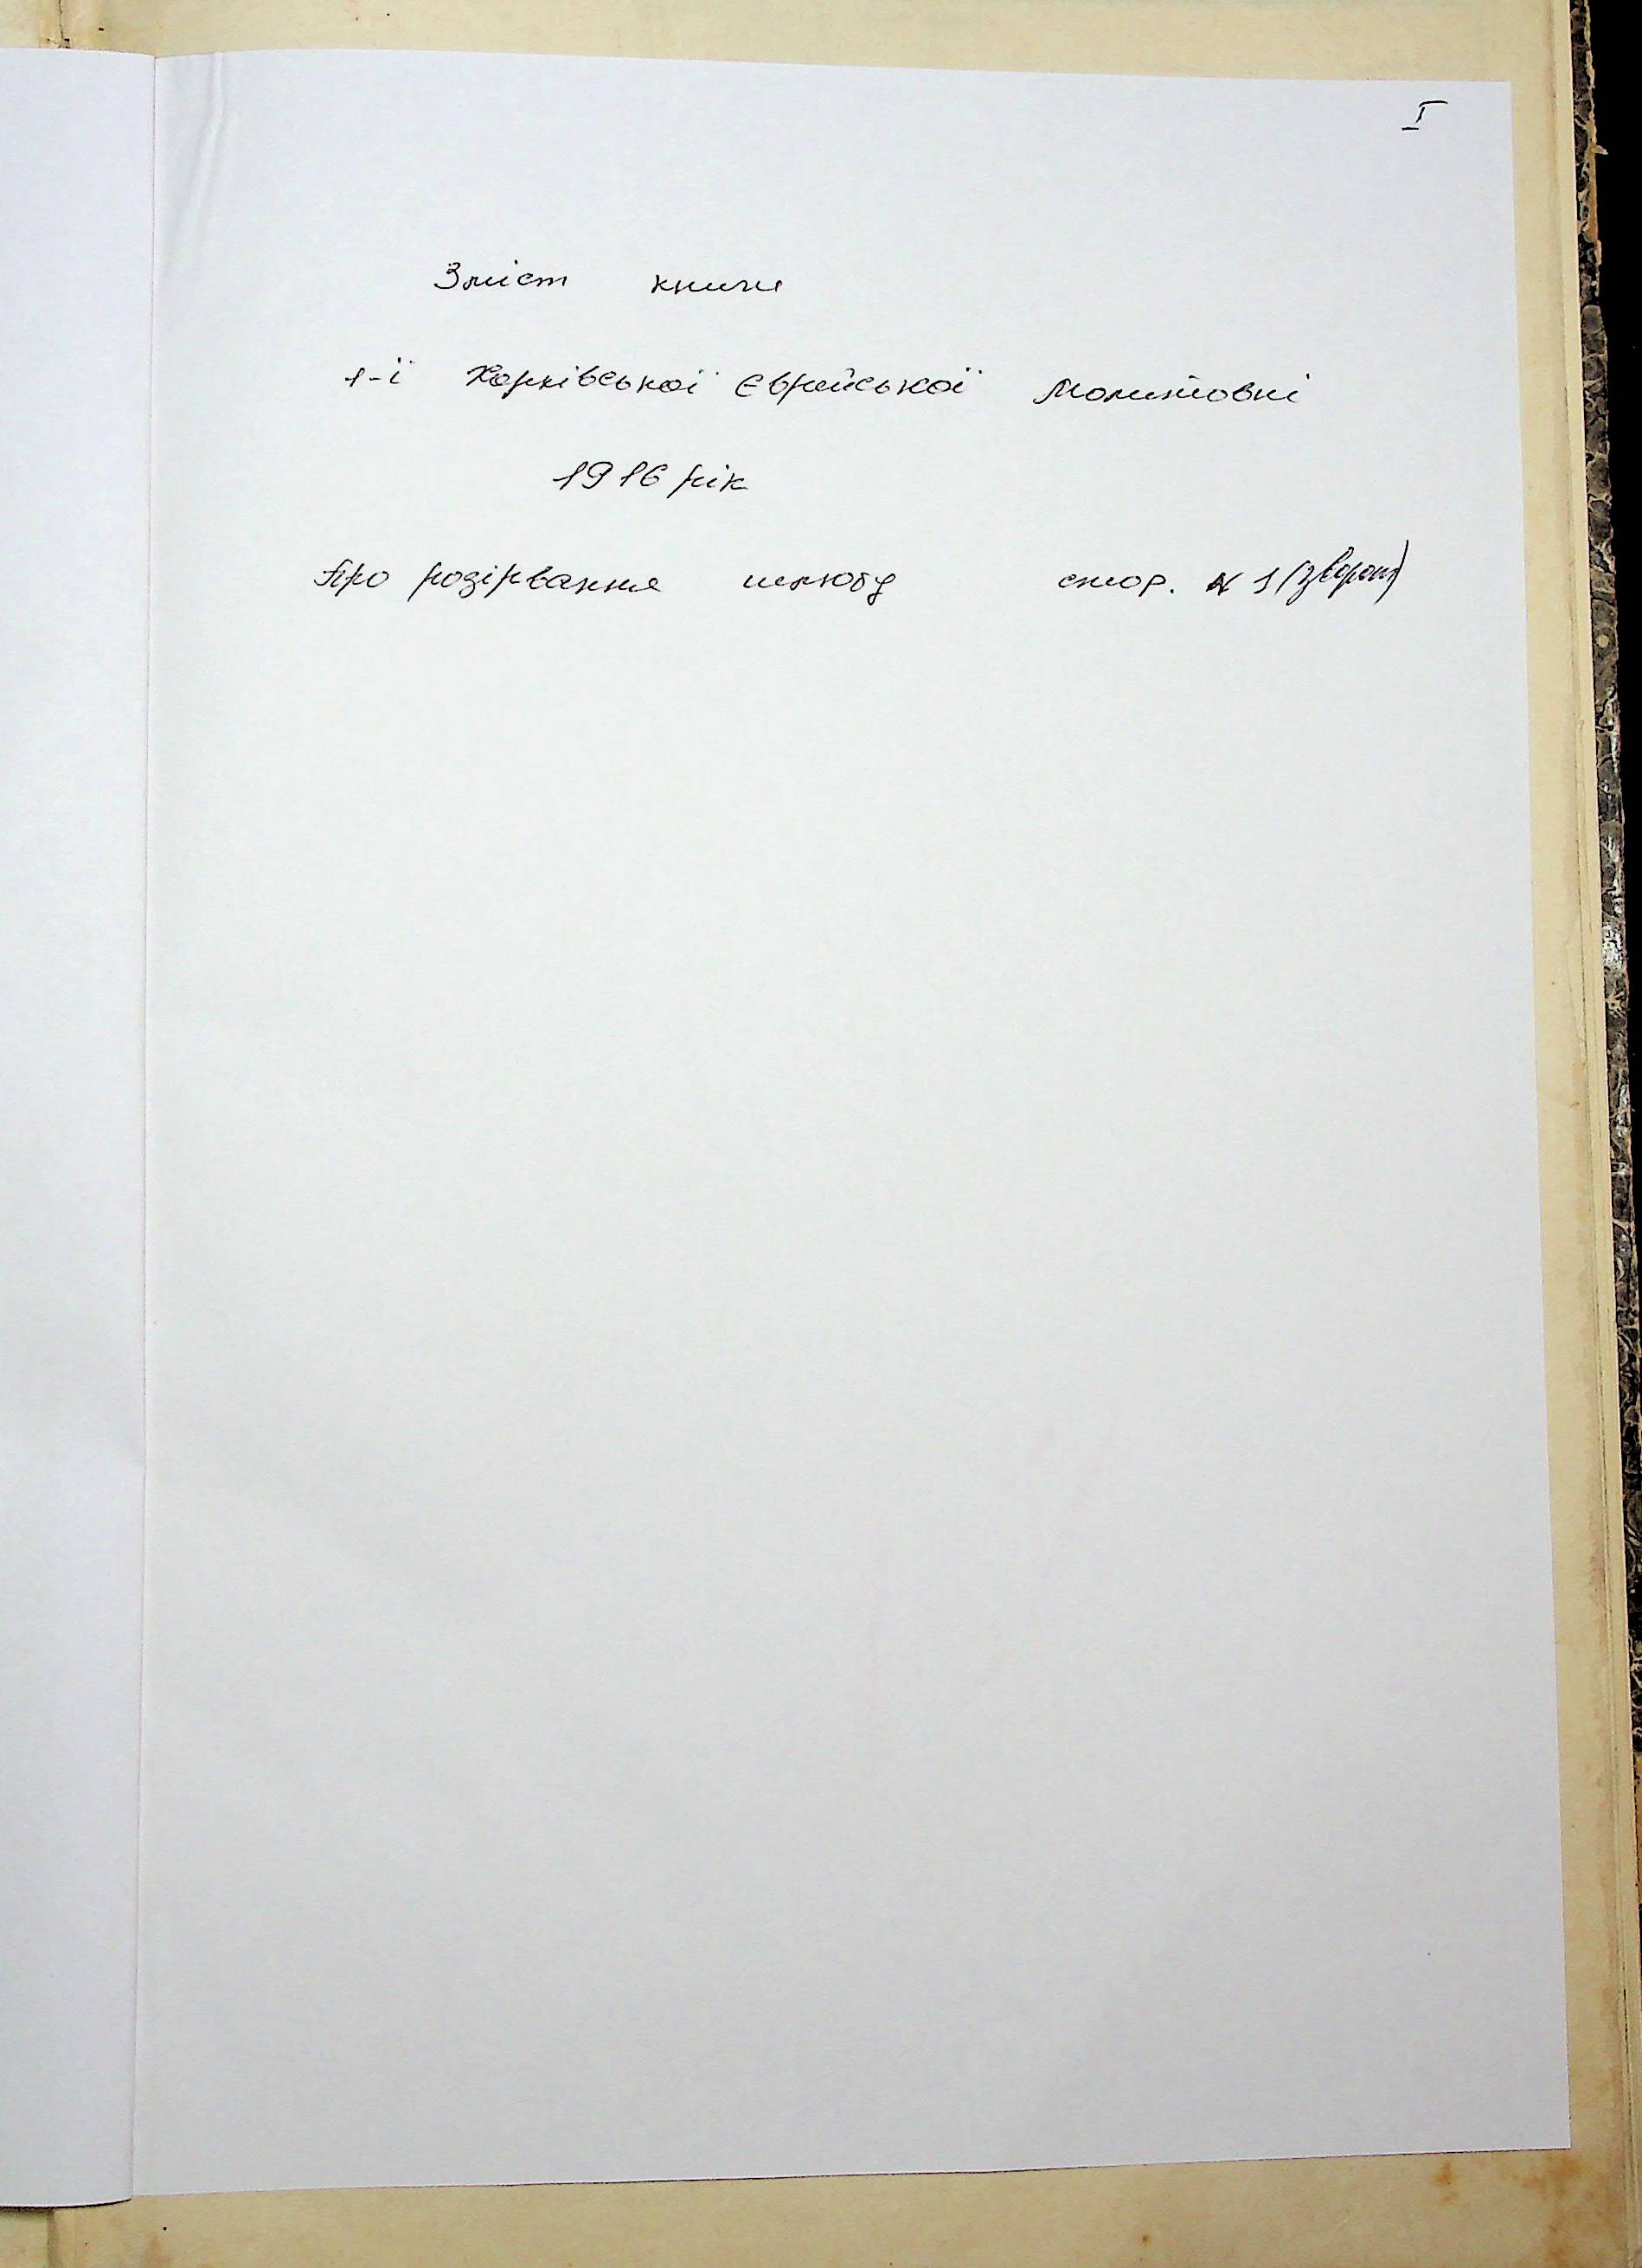 I
Зміст книги
1-ї Харківської Єврейської Молитовні
1916 рік
Про розірвання шлюбу стор. № 1 (зворот)